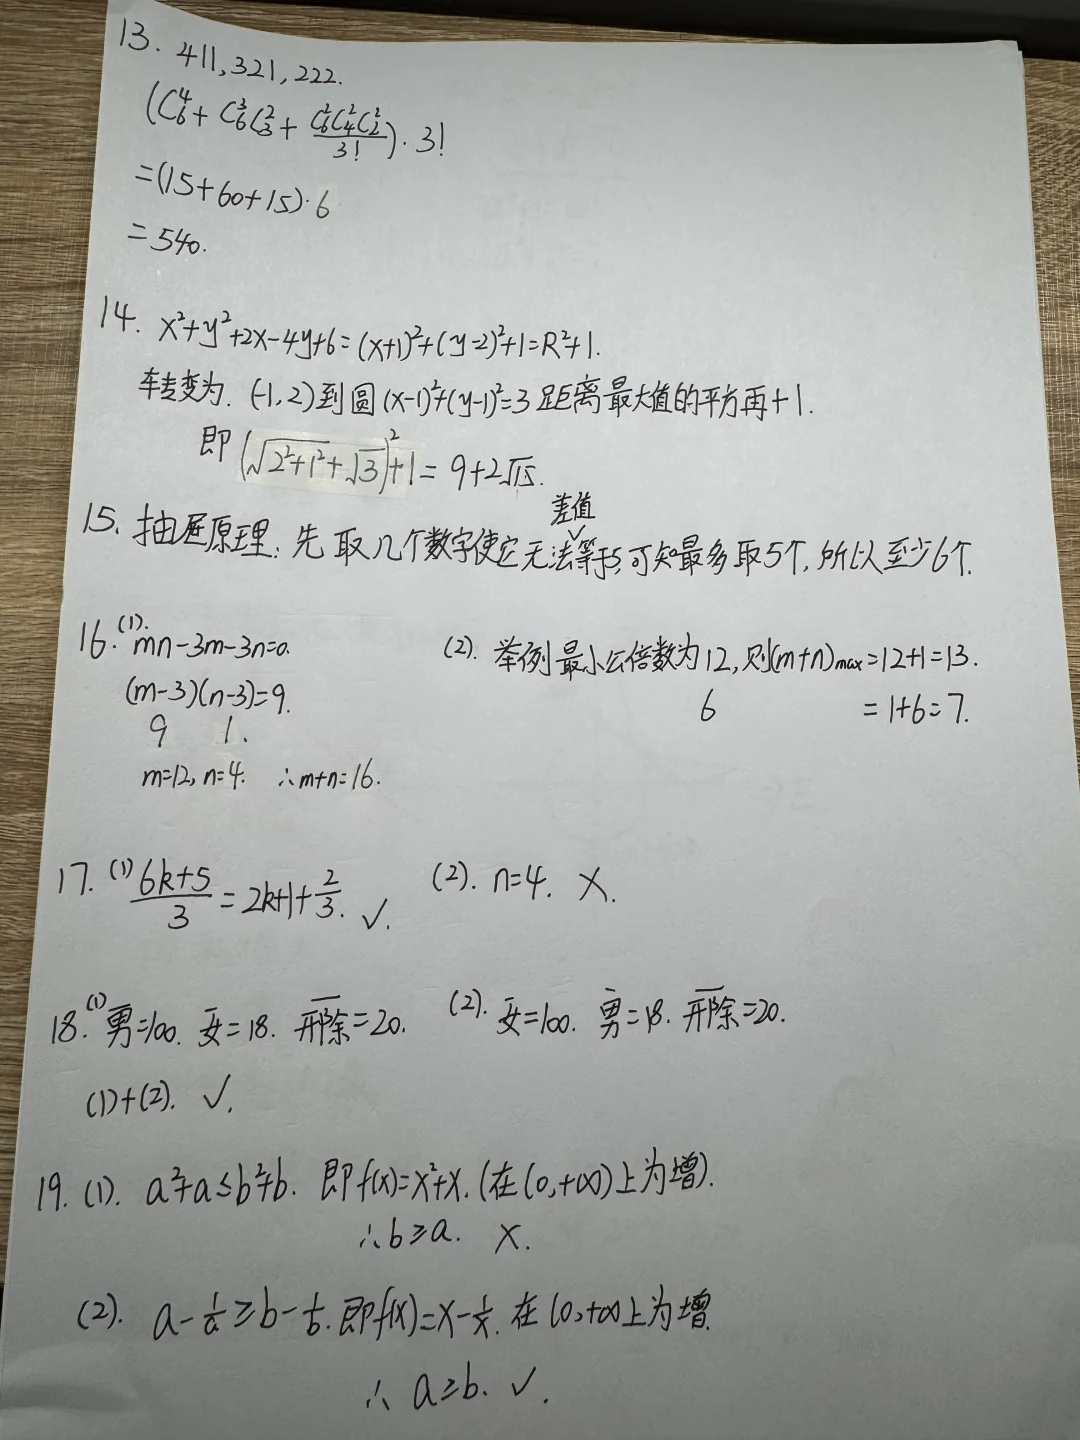 13. 411, 321, 222.
(C₆⁴ + C₆³C₃² + C₆²C₄²C₂²/3!)·3!
=(15+60+15)·6
=540.
14. x²+y²+2x-4y+6=(x+1)²+(y-2)²+1=R²+1.
转变为.(-1,2)到圆(x-1)²+(y-1)²=3距离最大值的平方再+1.
即(√(2²+1²)+√3)²+1=9+2√15.
差值
15. 抽屉原理:先取几个数字使它无法等于5,可知最多取5个,所以至少6个.
16.(1). mn-3m-3n=0.
(m-3)(n-3)=9.
9 1.
m=12, n=4. ∴m+n=16.
(2). 举例最小公倍数为12,则(m+n)max=12+1=13.
6 =1+6=7.
17.(1) (6k+5)/3=2k+1+2/3. ✓.
(2). n=4. ×.
18.(1)男=100. 女=18. 开除=20.
(2). 女=100. 男=18. 开除=20.
(1)+(2). ✓.
19.(1). a²+a≤b²+b. 即f(x)=x²+x.(在(0,+∞)上为增).
∴b≥a. ×.
(2). a-1/a≥b-1/b. 即f(x)=x-1/x. 在(0,+∞上为增.
∴ a≥b. ✓.